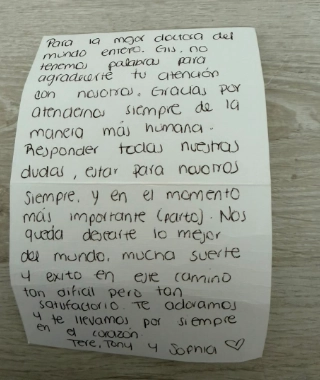 Para la mejor doctora del
mundo entero. Gis, no
tenemos palabras para
agradecerte tu atención
con nosotros. Gracias por
atendernos siempre de la
manera más humana.
Responder todas nuestras
dudas, estar para nosotros
siempre, y en el momento
más importante (parto). Nos
queda desearte lo mejor
del mundo, mucha suerte
y exito en este camino
tan dificil pero tan
satisfactorio. Te adoramos
y te llevamos por siempre
en el corazón
Tere, Tony y Sophia ♡